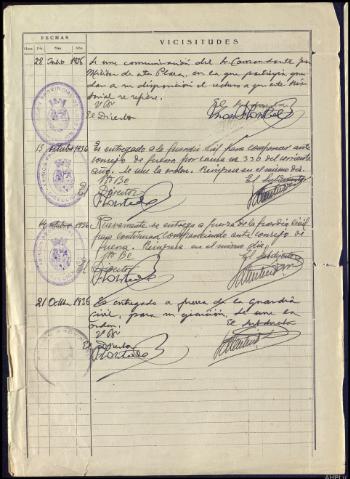 FECHAS
VICISITUDES
Hora Día Mes Año
28 Julio 1936 Se une comunicación del Sr. Comandante
Militar de esta Plaza, en la que participa que
da a su disposición el recluso a que este
se refiere.
Vº Bº El Subdirector
El Director
13 octubre 1936 Es entregado a la Guardia Civil para comparecer ante
consejo de guerra por causa nº 336 del corriente
año. Se une la orden. Reingresa en el mismo día.
Vº Bº El Subdirector
Director
14 octubre 1936 Nuevamente se entrega a fuerza de la Guardia Civil
para continuar compareciendo ante consejo de
guerra. Reingresa en el mismo día.
Vº Bº El Subdirector
Director
21 Octbre 1936 Es entregado a fuerza de la Guardia
Civil, para su ejecución, se une la
orden.
Vº Bº El Subdirector
El Director